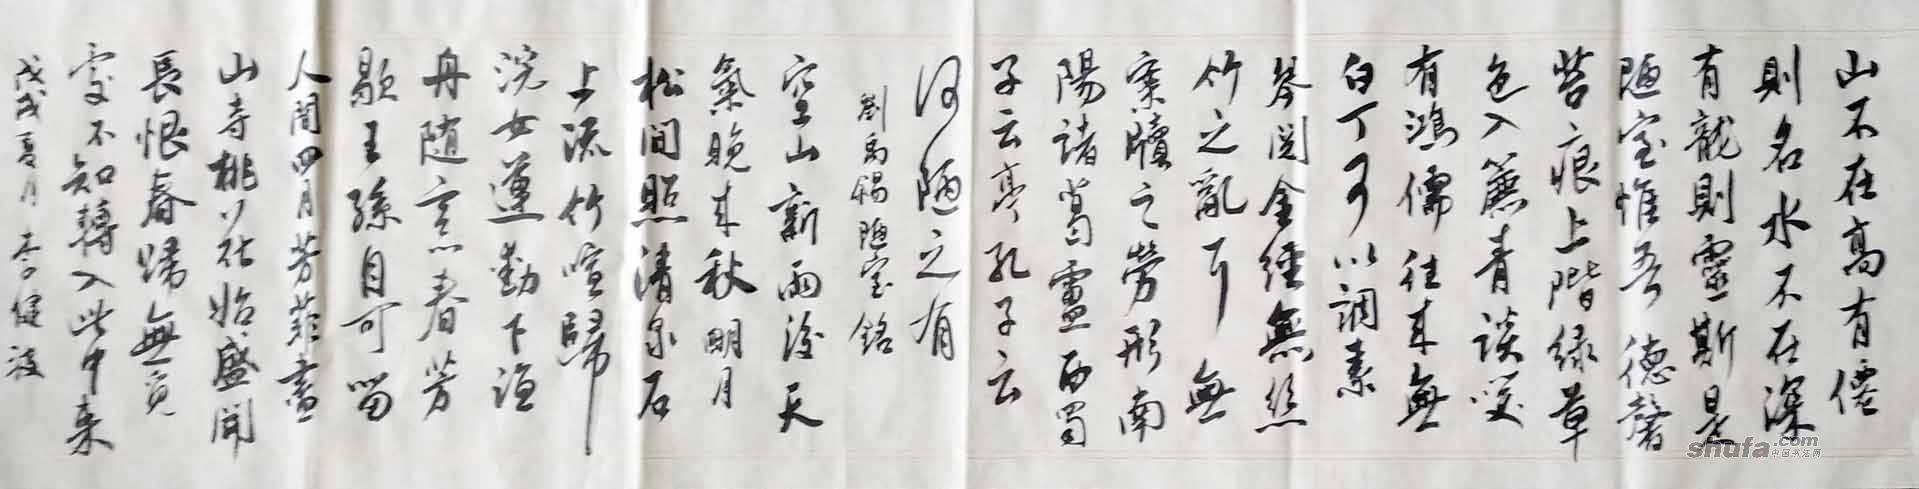 山不在高有僊
則名水不在深
有龍則靈斯是
陋室惟吾德馨
苔痕上階綠草
色入簾青談笑
有鴻儒往來無
白丁可以調素
琴閱金經無絲
竹之亂耳無
案牘之勞形南
陽諸葛廬西蜀
子云亭孔子云
何陋之有
劉禹錫陋室銘
空山新雨後天
氣晚來秋明月
松間照清泉石
上流竹喧歸
浣女蓮動下漁
舟随意春芳
歇王孫自可留
人間四月芳菲盡
山寺桃花始盛開
長恨春歸無覓
處不知轉入此中来
戊戌夏月李健波
shufa.com
中国书法网